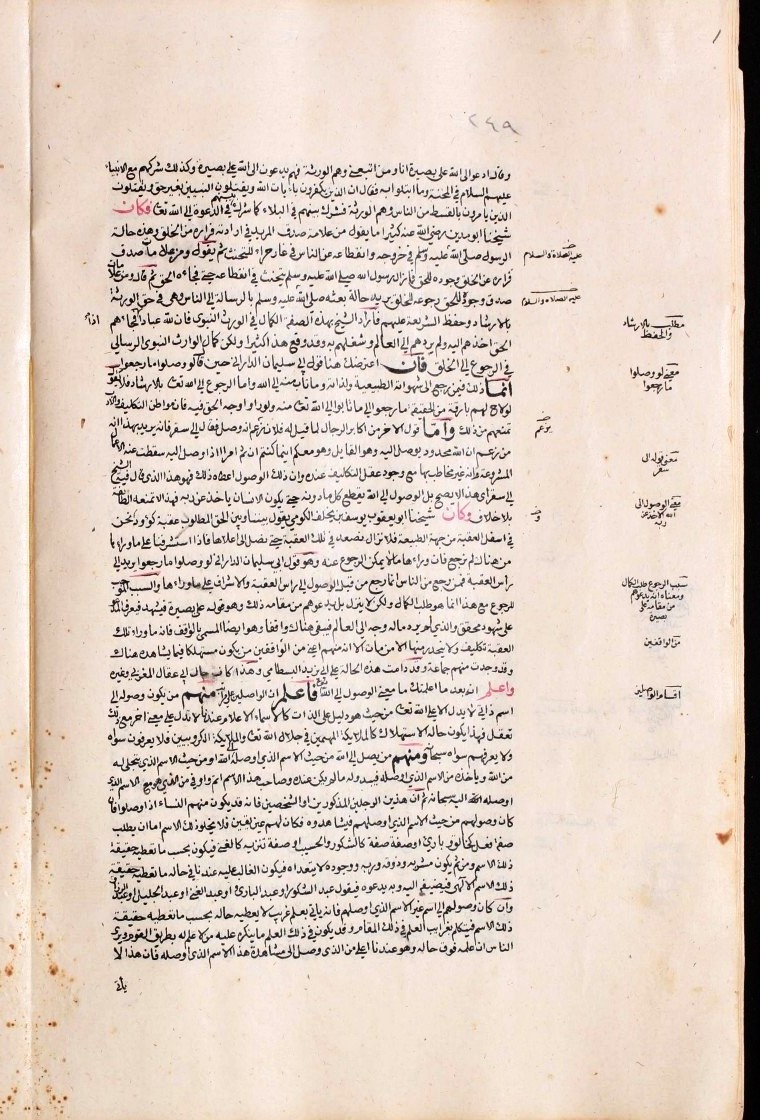 ٢٤٩
وقال ادعوا الى الله على بصيرة انا ومن اتبعني وهم الورثة فهم يدعون الى الله على بصيرة وكذلك شركهم مع الانبياء
عليهم السلام في المحنة وما ابتلوا به فقال ان الذين يكفرون بآيات الله ويقتلون النبيين بغير حق ويقتلون
الذين يامرون بالقسط من الناس وهم الورثة فشرك بينهم في البلاء كما شرك بينهم في الدعوة الى الله تعا فكان
شيخنا ابو مدين رضي الله عنه كثيرا ما يقول من علامة صدق المريد في ارادته فراره من الخلق وهذه حالة
الرسول صلى الله عليه وسلم في خروجه وانقطاعه عن الناس في غار حراء للتحنث ثم يقول ومن علامات صدق
فراره عن الخلق وجوده للحق فما زال رسول الله صلى الله عليه وسلم يتحنث في انقطاعه حتى فجاءه الحق ثم قال ومن علامات
صدق وجوده للحق رجوعه للخلق يريد حالة بعثه صلى الله عليه وسلم بالرسالة الى الناس وهي في حق الورثة
بالارشاد وحفظ الشريعة عليهم فاراد الشيخ بهذه الصفة الكمال في الورث النبوي فان لله عبادا اذا فجاهم
الحق اخذهم اليه ولم يردهم الى العالم وشغلهم به وقد وقع هذا كثيرا ولكن كمال الوارث النبوي الرسالي
في الرجوع الى الخلق فان اعترضك هنا قول ابي سليمان الداراني حين قال لو وصلوا ما رجعوا
انما ذلك فيمن رجع الى شهواته الطبيعية ولذاته وما تاب منه الى الله واما الرجوع الى الله تعا بالارشاد فلا يقول
لو لاح لهم بارقة من الحقيقة ما رجعوا الى ما تابوا الى الله تعا منه ولو راوا وجه الحق فيه فان موطن التكليف والادب
تمنعهم من ذلك واما قول الاخر من اكابر الرجال لما قيل له فلان يزعم انه وصل فقال الى سقر فانه يريد بهذا انه
من زعم ان الله محدود يوصل اليه وهو القايل وهو معكم اينما كنتم او ثم امر اذا اوصل اليه سقطت عنه الاعمال
المشروعة وانه غير مخاطب بها مع وجود عقل التكليف عنده وان ذلك الوصول اعطاه ذلك فهو هذا الذي قال فيه الشيخ
الى سقر اي هذا لا يصح بل الوصول الى الله يقطع كل ما دونه حتى يكون الانسان ياخذ عن ربه فهذا لا تمنعه الطائفة
بلا خلاف وكان شيخنا ابو يعقوب يوسف بن يخلف الكومي يقول بيننا وبين الحق المطلوب عقبة كؤود ونحن
في اسفل العقبة من جهة الطبيعة فلا نزال نصعد في تلك العقبة حتى نصل الى اعلاها فاذا استشرفنا على ما وراءها
من هناك لم نرجع فان وراءها ما لا يمكن الرجوع عنه وهو قول ابي سليمان الداراني لو وصلوا ما رجعوا يريد الى
راس العقبة فمن رجع من الناس انما رجع من قبل الوصول الى راس العقبة والاشراف على ما وراءها والسبب الموجب
للرجوع مع هذا انما هو طلب الكمال ولكن لا ينزل بل يدعوهم من مقامه ذلك وهو قوله على بصيرة فيشهد فيعرف المدعو
على شهود محقق والذي لم يرد ما له وجه الى العالم فيبقى هناك واقفا وهو ايضا المسمى بالواقف فانه ما وراء تلك
العقبة تكليف ولا ينحدر منها الا من مات الا انه منهم اعني من الواقفين من يكون مستهلكا فيما يشاهده هناك
وقد وجدت منهم جماعة وقد دامت هذه الحالة على ابي يزيد البسطامي وهذا كان حال ابي عقال المغربي وغيره
واعلم انه بعد ما اعلمتك ما معنى الوصول الى الله تعالى فاعلم ان الواصلين على مراتب منهم من يكون وصوله الى
اسم ذاتي لا يدل الا على الله تعا من حيث هو دليل على الذات كالاسماء الاعلام عندنا لا تدل على معنى اخر مع ذلك
تعقل فهذا يكون حاله الاستهلاك كالملائكة المهيمين في جلال الله تعا والملائكة الكروبيين فلا يعرفون سواه
ولا يعرفهم سواه سبحانه ومنهم من يصل الى الله من حيث الاسم الذي اوصله الى الله او من حيث الاسم الذي يتجلى له
من الله وياخذه من الاسم الذي اوصله
اوصله الله اليه سبحانه ثم ان هذين الرجلين المذكورين او الشخصين فانه قد يكون منهم النساء اذا وصلوا فان
كان وصولهم من حيث الاسم الذي اوصلهم فيشاهدوه فكان لهم عين يقين فلا يخلو ذلك الاسم اما ان يطلب
صفة فعل كخالق وبارئ او صفة صفة كالشكور والحسيب او صفة تنزيه كالغني فيكون بحسب ما تعطيه حقيقة
ذلك الاسم ومن ثم يكون مشربه وذوقه وريه ووجوده لا يتعداه فيكون الغالب عليه عندنا في حاله ما تعطيه حقيقة
ذلك الاسم الالهي فيضيفه اليه وبه يدعوه فيقول عبد الشكور او عبد الباري او عبد الغني او عبد الجليل او عبد الرزاق
وان كان وصولهم الى اسم غير الاسم الذي اوصلهم فانه ياتي بعلم غريب لا يعطيه حاله بحسب ما تعطيه حقيقة
ذلك الاسم فيتكلم بغرايب العلم في ذلك المقام وقد يكون في ذلك العلم ما ينكره عليه من لا علم له بطريق القوم ويرى
الناس ان علمه فوق حاله وهو عندنا اعلى من الذي وصل الى مشاهدة هذا الاسم الذي اوصله فان هذا لا
ياتي
عليه الصلاة والسلام
عليه الصلاة والسلام
مطلب بالارشاد
والحفظ
معنى لو وصلوا
ما رجعوا
يزعم
معنى قوله الى
سقر
معنى الوصول الى
الله الاخذ عن
ربه
سبب الرجوع طلب الكمال
ومعناه انه يدعوهم
من مقامه على
بصيرة
من الواقفين
اقسام الواصلين